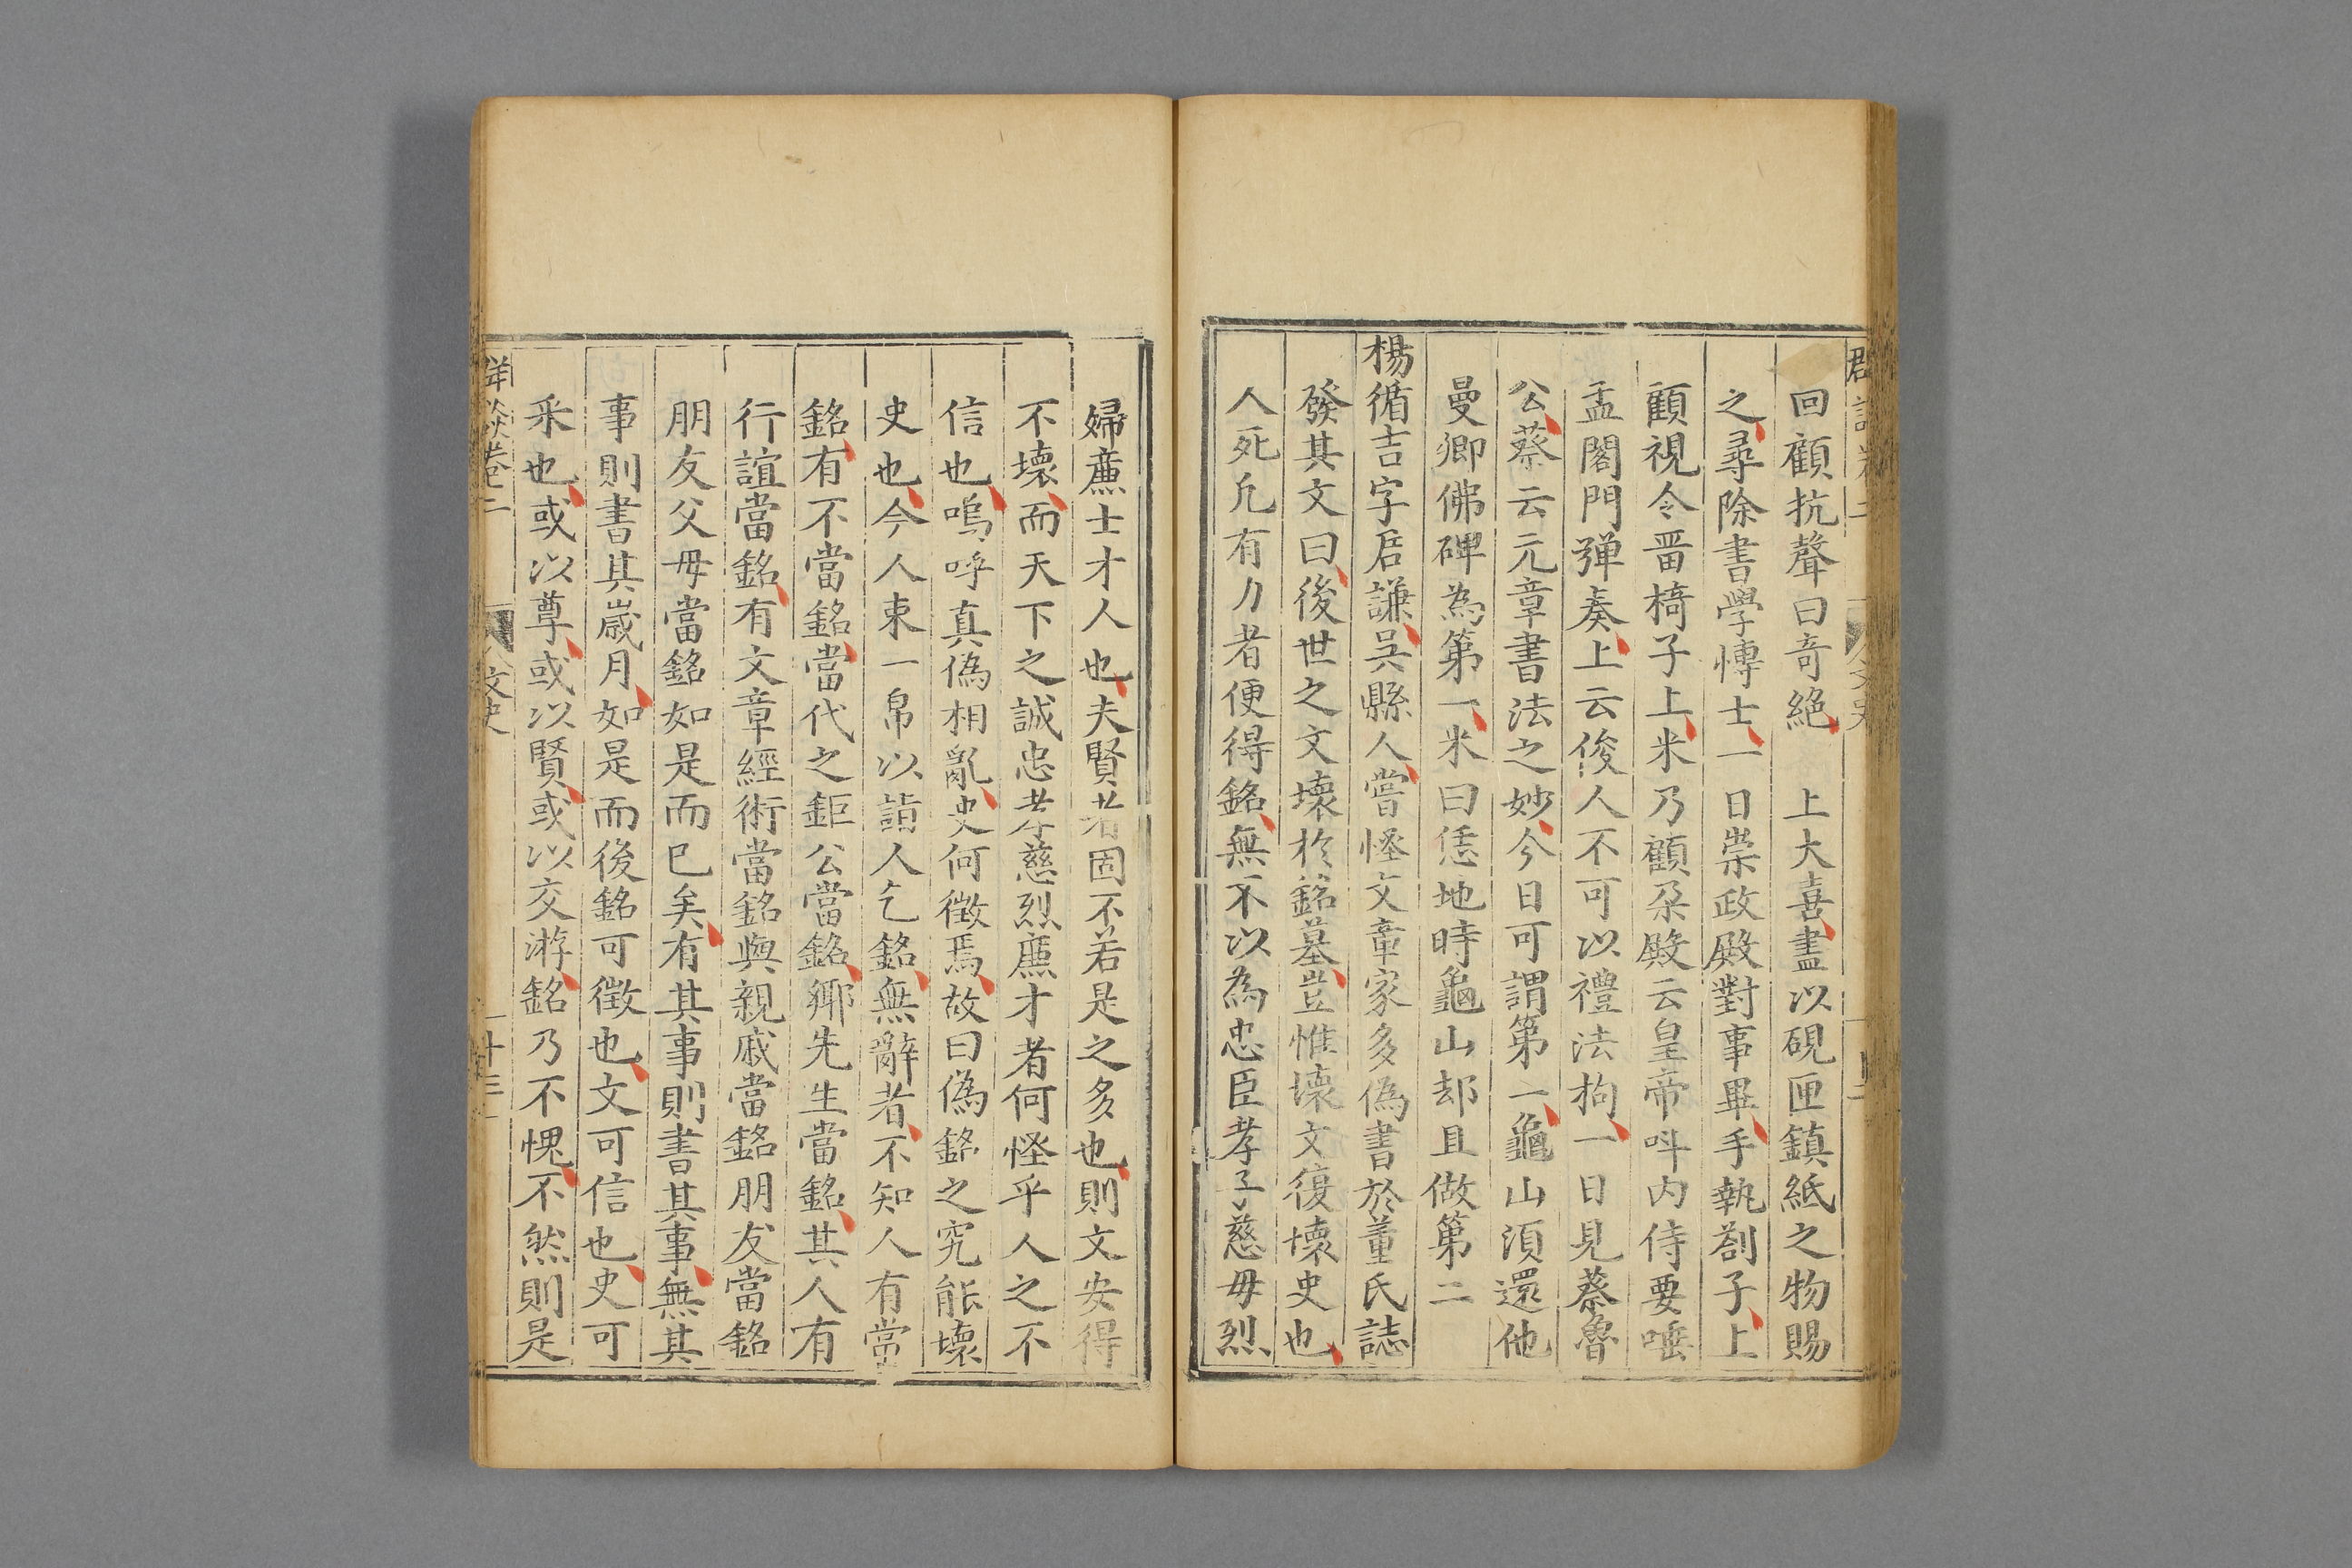 回顧抗聲曰奇絕　上大喜盡以硯匣鎮紙之物賜
之尋除書學博士一日崇政殿對事畢手執劄子上
顧視令畱椅子上米乃顧朶殿云皇帝呌内侍要唾
盂閤門彈奏上云俊人不可以禮法拘一日見蔡魯
公蔡云元章書法之妙今日可謂第一龜山湏還他
曼卿佛碑為第一米曰恁地時龜山却且做第二
楊循吉字君謙吳縣人嘗怪文章家多偽書於董氏誌
發其文曰後世之文壞於銘墓豈惟壞文復壞史也
人死凢有力者便得銘無不以為忠臣孝子慈母烈
婦亷士才人也夫賢者固不若是之多也則文安得
不壞而天下之誠忠孝慈烈亷才者何怪乎人之不
信也嗚呼真偽相亂史何徵焉故曰偽銘之究能壞
史也今人束一帛以詣人乞銘無辭者不知人有當
銘有不當銘當代之鉅公當銘鄉先生當銘其人有
行誼當銘有文章經術當銘與親戚當銘朋友當銘
朋友父母當銘如是而已矣有其事則書其事無其
事則書其歲月如是而後銘可徵也文可信也史可
釆也或以尊或以賢或以交游銘乃不愧不然則是
文史
十三